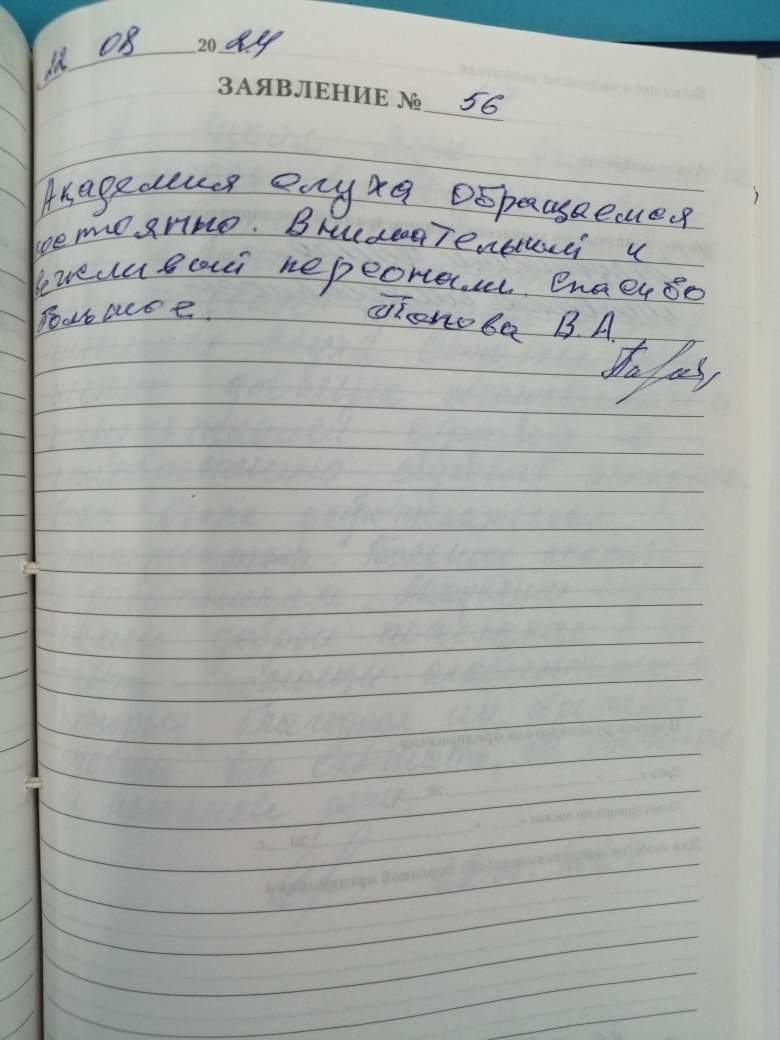 22 08 2024
ЗАЯВЛЕНИЕ № 56
Академия слуха обращаемся
постоянно. Внимательный и
вежливый персонал. Спасибо
большое. Попова В.А.